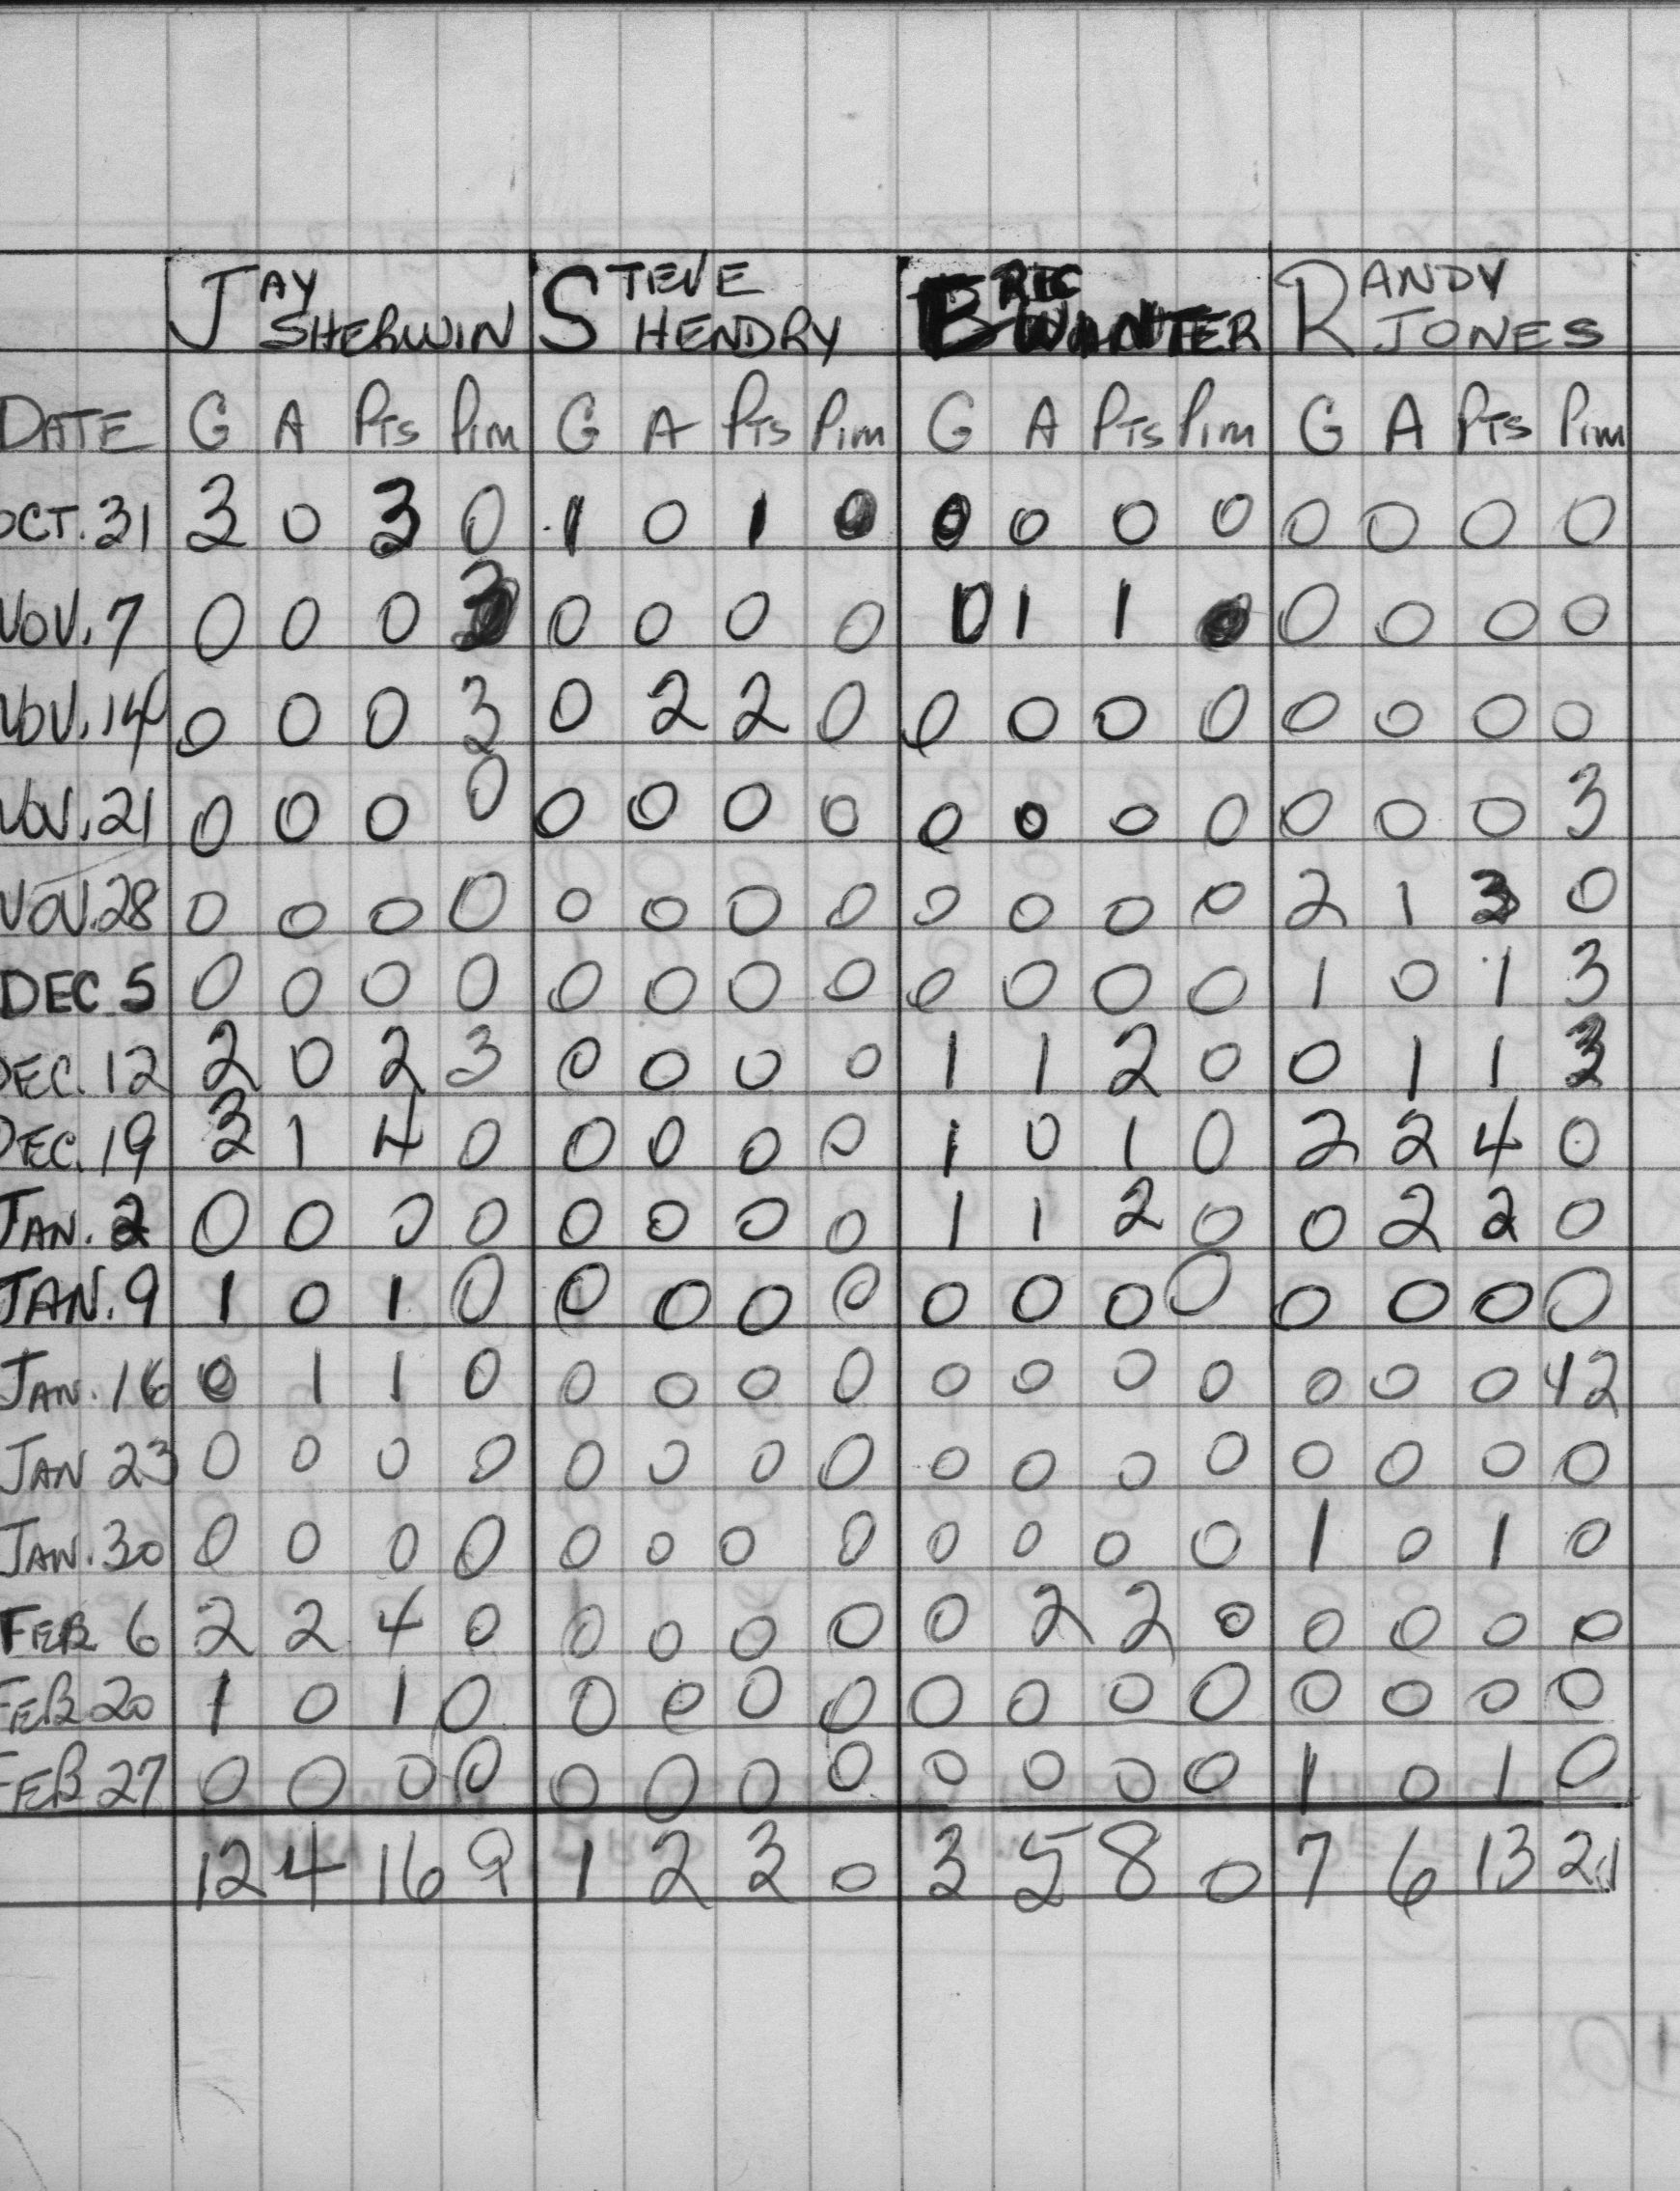 JAY SHERWIN STEVE HENDRY ERIC WANTER RANDY JONES
DATE G A Pts Pim G A Pts Pim G A Pts Pim G A Pts Pim
OCT. 31 3 0 3 0 1 0 1 0 0 0 0 0 0 0 0 0
NOV. 7 0 0 0 3 0 0 0 0 0 1 1 0 0 0 0
NOV. 14 0 0 0 3 0 2 2 0 0 0 0 0 0 0 0 0
NOV. 21 0 0 0 0 0 0 0 0 0 0 0 0 0 0 0 3
NOV. 28 0 0 0 0 0 0 0 0 0 0 0 0 2 1 3 0
DEC 5 0 0 0 0 0 0 0 0 0 0 0 0 1 0 1 3
DEC. 12 2 0 2 3 0 0 0 0 1 1 2 0 0 1 1 3
DEC. 19 3 1 4 0 0 0 0 0 1 0 1 0 2 2 4 0
JAN. 2 0 0 0 0 0 0 0 0 1 1 2 0 0 2 2 0
JAN. 9 1 0 1 0 0 0 0 0 0 0 0 0 0 0 0 0
JAN. 16 0 1 1 0 0 0 0 0 0 0 0 0 0 0 0 12
JAN 23 0 0 0 0 0 0 0 0 0 0 0 0 0 0 0 0
JAN. 30 0 0 0 0 0 0 0 0 0 0 0 0 1 0 1 0
FEB 6 2 2 4 0 0 0 0 0 0 2 2 0 0 0 0 0
FEB 20 1 0 1 0 0 0 0 0 0 0 0 0 0 0 0 0
FEB 27 0 0 0 0 0 0 0 0 0 0 0 0 1 0 1 0
12 4 16 9 1 2 3 0 3 5 8 0 7 6 13 21